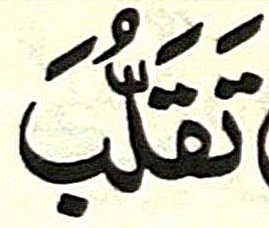 تَقَلُّبَ